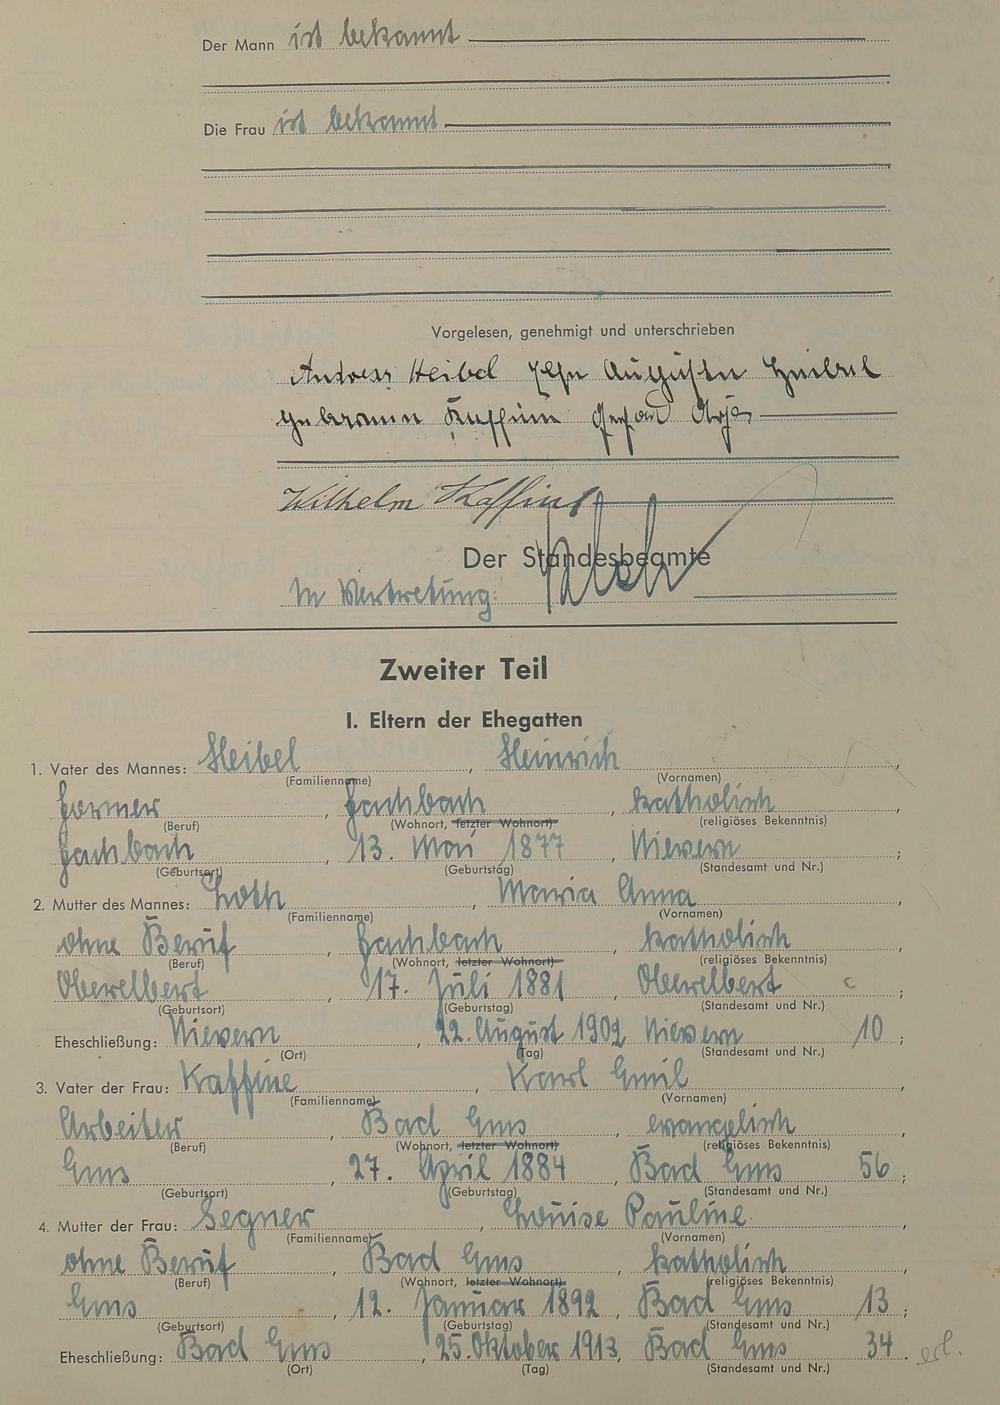 Der Mann ist bekannt
Die Frau ist bekannt
Vorgelesen, genehmigt und unterschrieben
Andreas Heibel Auguste Heibel
geborene Kaffine
Wilhelm Kaffine
Der Standesbeamte
In Vertretung:
Zweiter Teil
I. Eltern der Ehegatten
1. Vater des Mannes: Heibel, Heinrich,
(Familienname) (Vornamen)
Former, Fachbach, katholisch,
(Beruf) (Wohnort, letzter Wohnort) (religiöses Bekenntnis)
Fachbach, 13. Mai 1877, Nievern;
(Geburtsort) (Geburtstag) (Standesamt und Nr.)
2. Mutter des Mannes: Loth, Maria Anna,
(Familienname) (Vornamen)
ohne Beruf, Fachbach, katholisch,
(Beruf) (Wohnort, letzter Wohnort) (religiöses Bekenntnis)
Oberelbert, 17. Juli 1881, Oberelbert;
(Geburtsort) (Geburtstag) (Standesamt und Nr.)
Eheschließung: Nievern, 22. August 1902 Nievern 10;
(Ort) (Tag) (Standesamt und Nr.)
3. Vater der Frau: Kaffine, Karl Emil,
(Familienname) (Vornamen)
Arbeiter, Bad Ems, evangelisch,
(Beruf) (Wohnort, letzter Wohnort) (religiöses Bekenntnis)
Ems, 27. April 1884, Bad Ems 56;
(Geburtsort) (Geburtstag) (Standesamt und Nr.)
4. Mutter der Frau: Segner, Louise Pauline,
(Familienname) (Vornamen)
ohne Beruf, Bad Ems, katholisch,
(Beruf) (Wohnort, letzter Wohnort) (religiöses Bekenntnis)
Ems, 12. Januar 1892, Bad Ems 13;
(Geburtsort) (Geburtstag) (Standesamt und Nr.)
Eheschließung: Bad Ems, 25. Oktober 1913, Bad Ems 34. erl.
(Ort) (Tag) (Standesamt und Nr.)